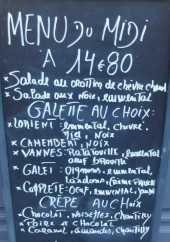 MENU DU MIDI
A 14€80
* Salade au crottin de chèvre chaud
* Salade aux Noix, emmental
GALETTE AU CHOIX:
* LORIENT: emmental, chèvre,
miel, Noix
* CAMEMBERT, NOIX
* VANNES: Ratatouille, emmental
oeuf brouillé
Oignons, emmental,
lardons, crème fraîche
* COMPLETE: OEUF, emmental,
CRÊPE AU CHOIX
* Chocolat, NOISETTES, CHANTILLY
* POIRE et Chocolat
* Caramel, amandes, CHANTILLY